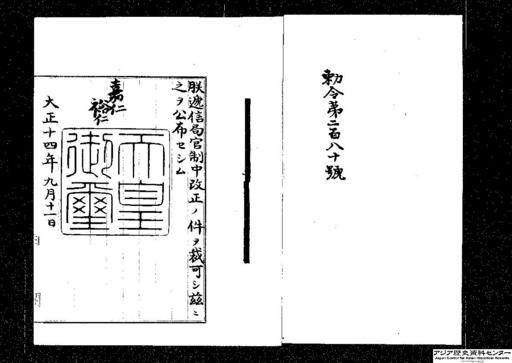 勅令第二百八十號
朕遞信局官制中改正ノ件ヲ裁可シ茲ニ
之ヲ公布セシム
嘉仁
裕仁
天皇
御璽
大正十四年九月十一日
アジア歴史資料センター
Japan Center for Asian Historical Records